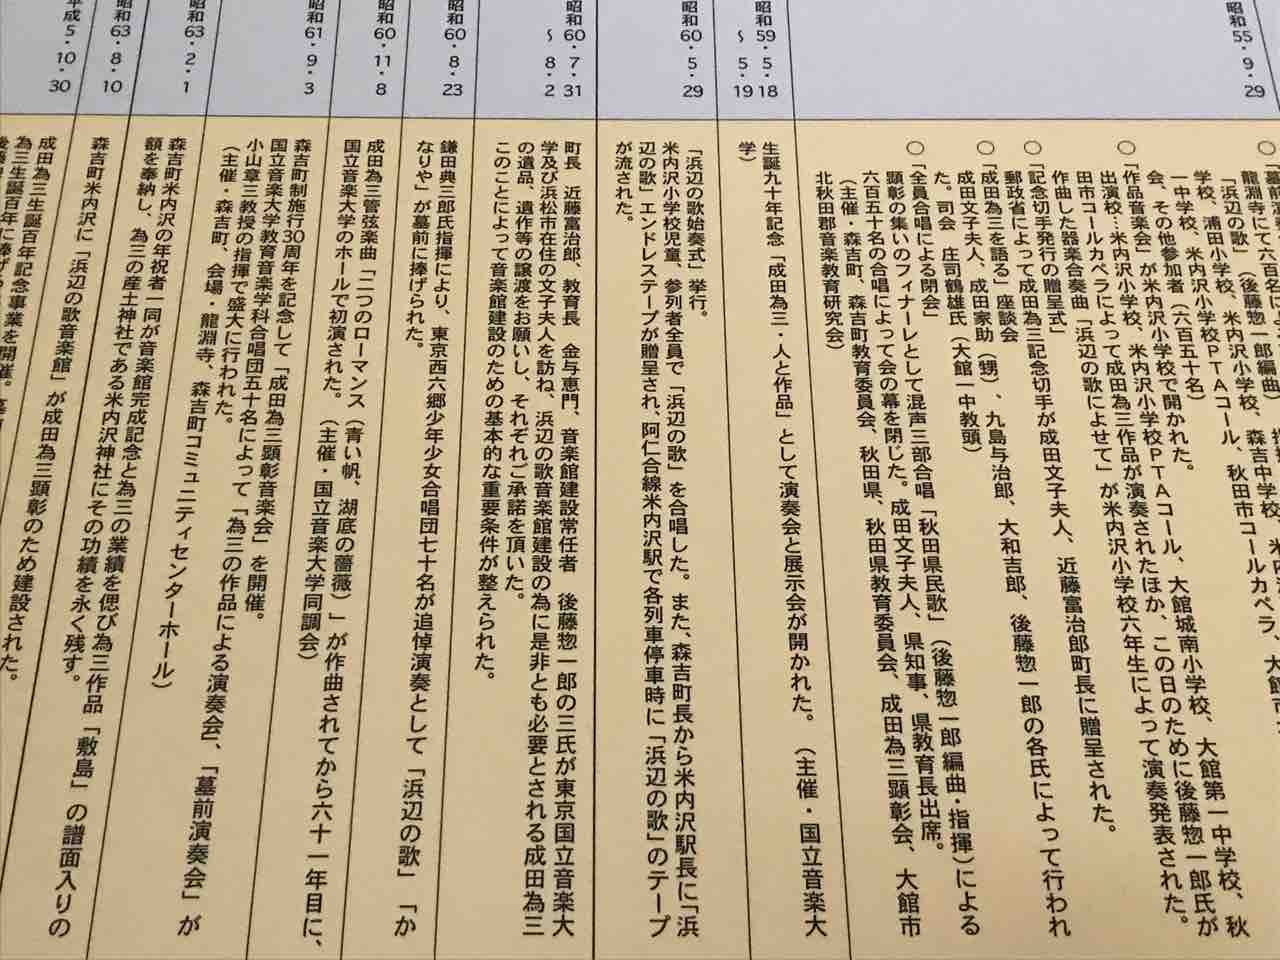 昭和55・9・29
龍淵寺にて六百名によ
「浜辺の歌」(後藤惣一郎編曲)
学校、浦田小学校、米内沢小学校、森吉中学校、
一中学校、米内沢小学校PTAコール、秋田市コールカペラ、大館市
会、その他参加者(六百五十名)
○「作品音楽会」が米内沢小学校で開かれた。
出演校…米内沢小学校、米内沢小学校PTAコール、大館城南小学校、大館第一中学校、秋
田市コールカペラによって成田為三作品が演奏されたほか、この日のために後藤惣一郎氏が
作曲した器楽合奏曲「浜辺の歌によせて」が米内沢小学校六年生によって演奏発表された。
○「記念切手発行の贈呈式」
郵政省によって成田為三記念切手が成田文子夫人、近藤富治郎町長に贈呈された。
○「成田為三を語る」座談会
成田文子夫人、成田家助(甥)、九島与治郎、大和吉郎、後藤惣一郎の各氏によって行われ
た。司会 庄司鶴雄氏(大館一中教頭)
○「全員合唱による閉会」
顕彰の集いのフィナーレとして混声三部合唱「秋田県民歌」(後藤惣一郎編曲・指揮)による
六百五十名の合唱によって会の幕を閉じた。成田文子夫人、県知事、県教育長出席。
(主催・森吉町、森吉町教育委員会、秋田県、秋田県教育委員会、成田為三顕彰会、大館市
北秋田郡音楽教育研究会)
昭和59・5・18
~5・19
生誕九十年記念「成田為三・人と作品」として演奏会と展示会が開かれた。(主催・国立音楽大
学)
昭和60・5・29
「浜辺の歌始奏式」挙行。
米内沢小学校児童、参列者全員で「浜辺の歌」を合唱した。また、森吉町長から米内沢駅長に「浜
辺の歌」エンドレステープが贈呈され、阿仁合線米内沢駅で各列車停車時に「浜辺の歌」のテープ
が流された。
昭和60・7・31
~8・2
町長 近藤富治郎、教育長 金与恵門、音楽館建設常任者 後藤惣一郎の三氏が東京国立音楽大
学及び浜松市在住の文子夫人を訪ね、浜辺の歌音楽館建設の為に是非とも必要とされる成田為三
の遺品、遺作等の譲渡をお願いし、それぞれご承諾を頂いた。
このことによって音楽館建設のための基本的な重要条件が整えられた。
昭和60・8・23
鎌田典三郎氏指揮により、東京西六郷少年少女合唱団七十名が追悼演奏として「浜辺の歌」「か
なりや」が墓前に捧げられた。
昭和60・11・8
成田為三管弦楽曲「二つのローマンス(青い帆、湖底の薔薇)」が作曲されてから六十一年目に、
国立音楽大学のホールで初演された。(主催・国立音楽大学同調会)
昭和61・9・3
森吉町制施行30周年を記念して「成田為三顕彰音楽会」を開催。
国立音楽大学教育音楽学科合唱団五十名によって「為三の作品による演奏会」、「墓前演奏会」が
小山章三教授の指揮で盛大に行われた。
(主催・森吉町、会場・龍淵寺、森吉町コミュニティセンターホール)
昭和63・2・1
森吉町米内沢の年祝者一同が音楽館完成記念と為三の業績を偲び為三作品「敷島」の譜面入りの
額を奉納し、為三の産土神社である米内沢神社にその功績を永く残す。
昭和63・8・10
森吉町米内沢に「浜辺の歌音楽館」が成田為三顕彰のため建設された。
平成5・10・30
成田為三生誕百年記念事業を開催。